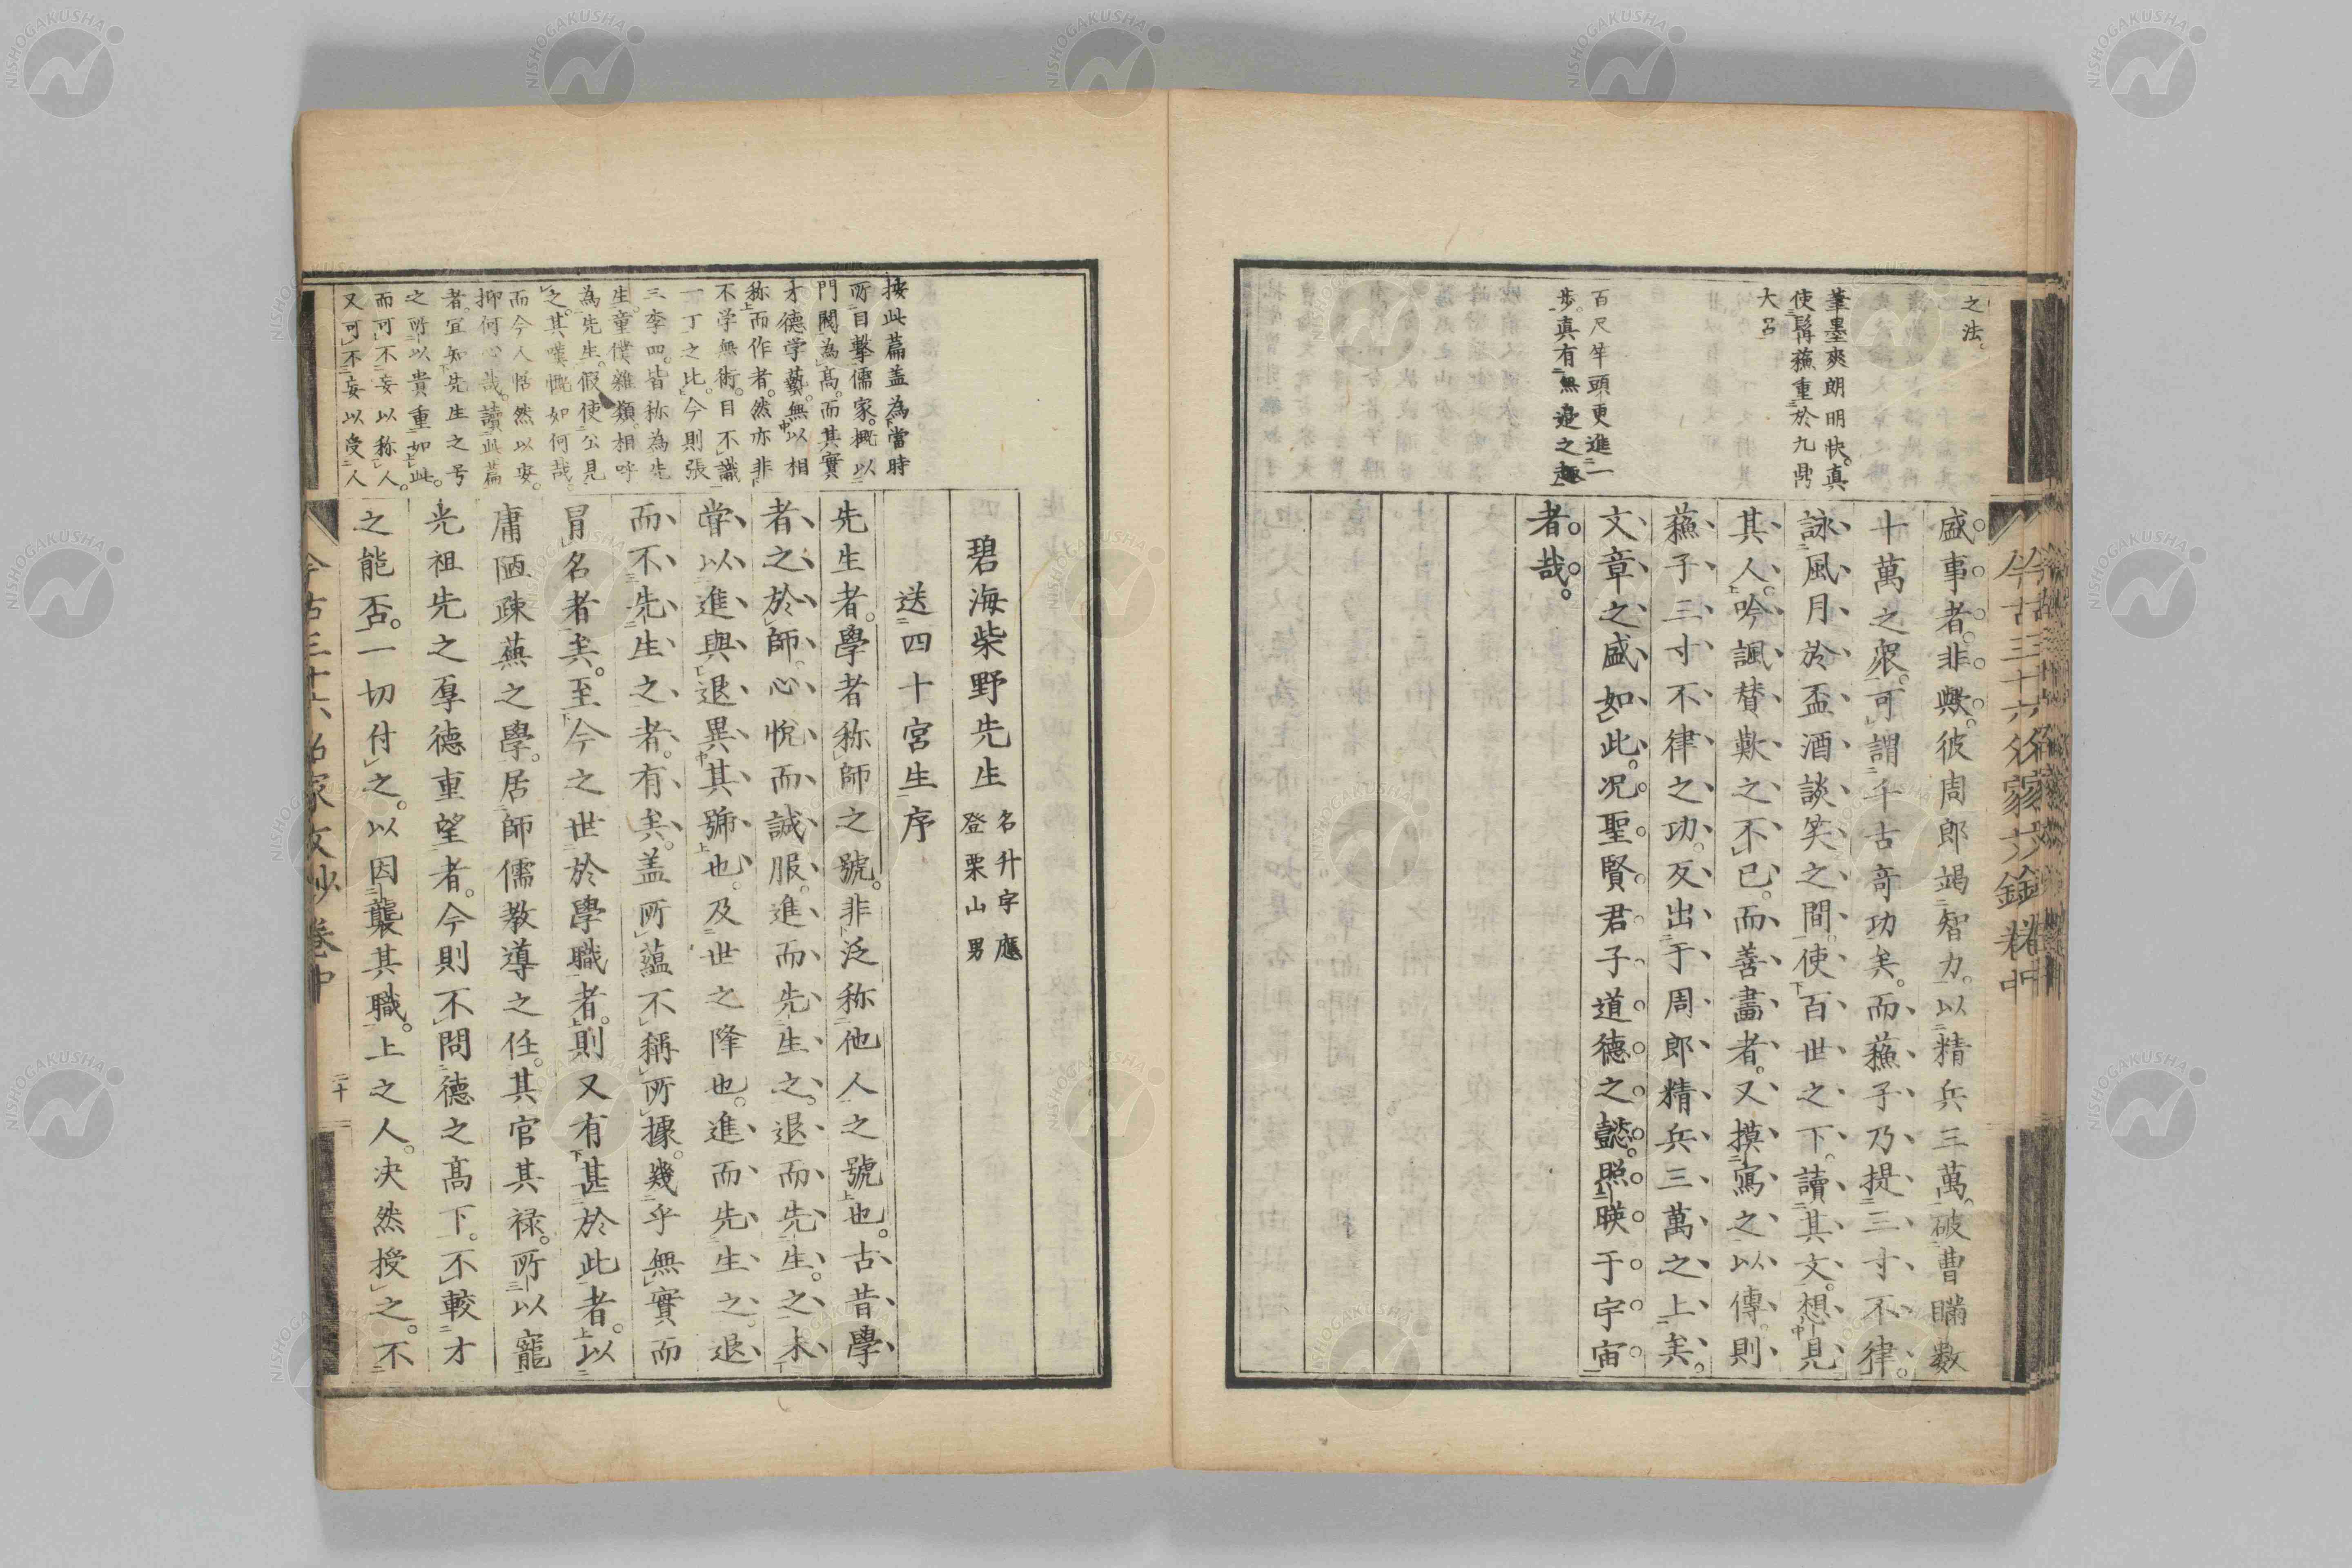 之法。
筆墨爽朗明快。真
使髯蘓重於九鼎
大呂
百尺竿頭更進一
步。真有無邊之趣
盛事者。非歟。彼周郎竭智力。以精兵三萬。破曹瞞數
十萬之衆。可謂千古奇功矣。而蘓子乃提三寸不律。
詠風月於盃酒談笑之間。使百世之下。讀其文。想見
其人。吟諷賛歎之不已。而善畵者。又摸寫之以傳。則
蘓子三寸不律之功。反出于周郎精兵三萬之上矣。
文章之盛如此。况聖賢君子道德之懿。照暎于宇宙
者哉。
按此篇盖為當時
所目擊儒家。概以
門閥為高。而其實
才德学藝。無以相
称而作者。然亦非
不学無術。目不識
一丁之比。今則張
三李四。皆称為先
生。童僕雜類。相呼
為先生。假使公見
之。其嘆慨如何哉。
而今人恬然以安。
抑何心哉。讀此篇
者。宜知先生之号
之所以貴重如此。
而可不妄以称人。
又可不妄以受人
碧海柴野先生
名升字應
登栗山男
送四十宮生序
先生者。學者称師之號。非泛称他人之號也。古昔學
者之於師。心悦而誠服。進而先生之。退而先生之。未
嘗以進與退異其號也。及世之降也。進而先生之。退
而不先生之者。有矣。盖所蘊不稱所據。幾乎無實而
冒名者矣。至今之世於學職者。則又有甚於此者。以
庸陋疎蕪之學。居師儒教導之任。其官其禄。所以寵
光祖先之厚德重望者。今則不問德之髙下。不較才
之能否。一切付之。以因襲其職。上之人。决然授之。不
今古三十六名家文鈔 卷中
二十二